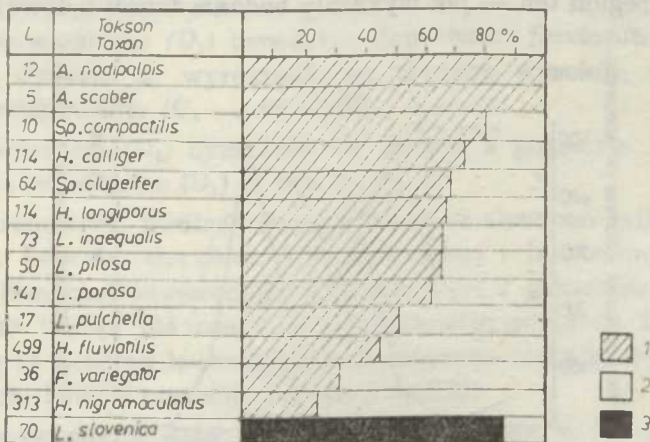 L Takson Taxon 20 40 60 80 %
12 A. nodipalpis
5 A. scaber
10 Sp. compactilis
114 H. calliger
64 Sp. clupeifer
114 H. longiporus
73 L. inaequalis
50 L. pilosa
141 L. porosa
17 L. pulchella
499 H. fluviatilis
36 F. variegator
313 H. nigromaculatus
70 L. slovenica
1
2
3